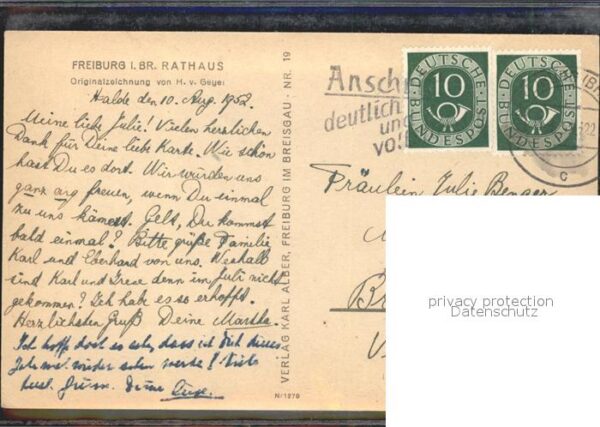 FREIBURG I. BR. RATHAUS
Originalzeichnung von H. v. Geyer
Halde den 10. Aug. 1952.
Meine liebe Julie! Vielen herzlichen
Dank für Deine liebe Karte. Wie schön
hast Du es dort. Wir würden uns
ganz arg freuen, wenn Du einmal
zu uns kämest. Gelt, Du kommst
bald einmal? Bitte grüße Familie
Karl und Eberhard von uns. Weshalb
sind Karl und Irene denn im Juli nicht
gekommen? Ich habe es so erhofft.
Herzlichsten Gruß Deine Martha.
Ich hoffe doch so sehr, dass ich Dich dieses
Jahr mal wieder sehen werde! Viele
herzl. Grüsse. Deine
VERLAG KARL ALBER, FREIBURG IM BREISGAU - NR. 19
N/1279
Ansch
deutlich
und
vo
10
DEUTSCHE
BUNDESPOST
10
DEUTSCHE
BUNDESPOST
22
c
Fräulein Julie Benger
B
V
privacy protection
Datenschutz